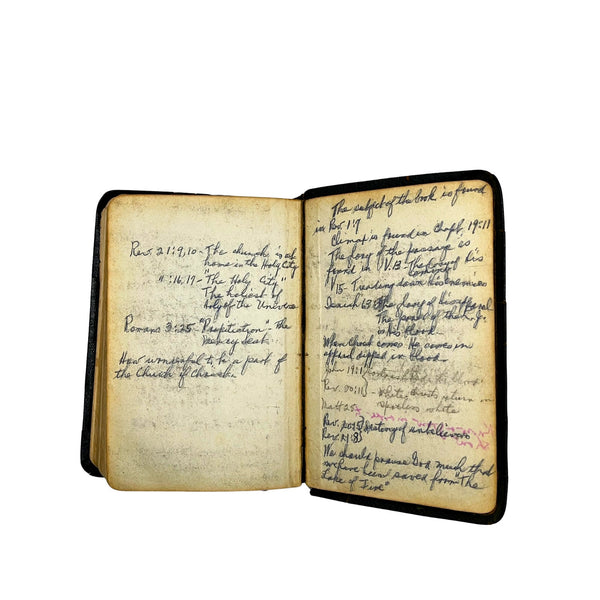 Rev. 21:9,10 - The church is at
home in the Holy City
" :16,17 - "The Holy City"
The holiest of
Holy of the Universe
Romans 3:25 - "Propitiation" - the
mercy seat.
How wonderful to be a part of
the Church of
The subject of the book is found
in Rev. 1:7
Climax is found in Chapt. 19:11
The glory of the passage is
found in V.13 - The glory of his
coming
V15 - Treading down His enemies
Isaiah 63: The glory of his apparel
The
is His blood.
When Christ comes He comes in
apparel dipped in blood.
19:1 blood
Rev. - White return in
spotless white
Matt 25
Rev. 20:15 } destiny of unbelievers
Rev. 21:8 }
We should praise God much that
we have been saved from "The
Lake of Fire"